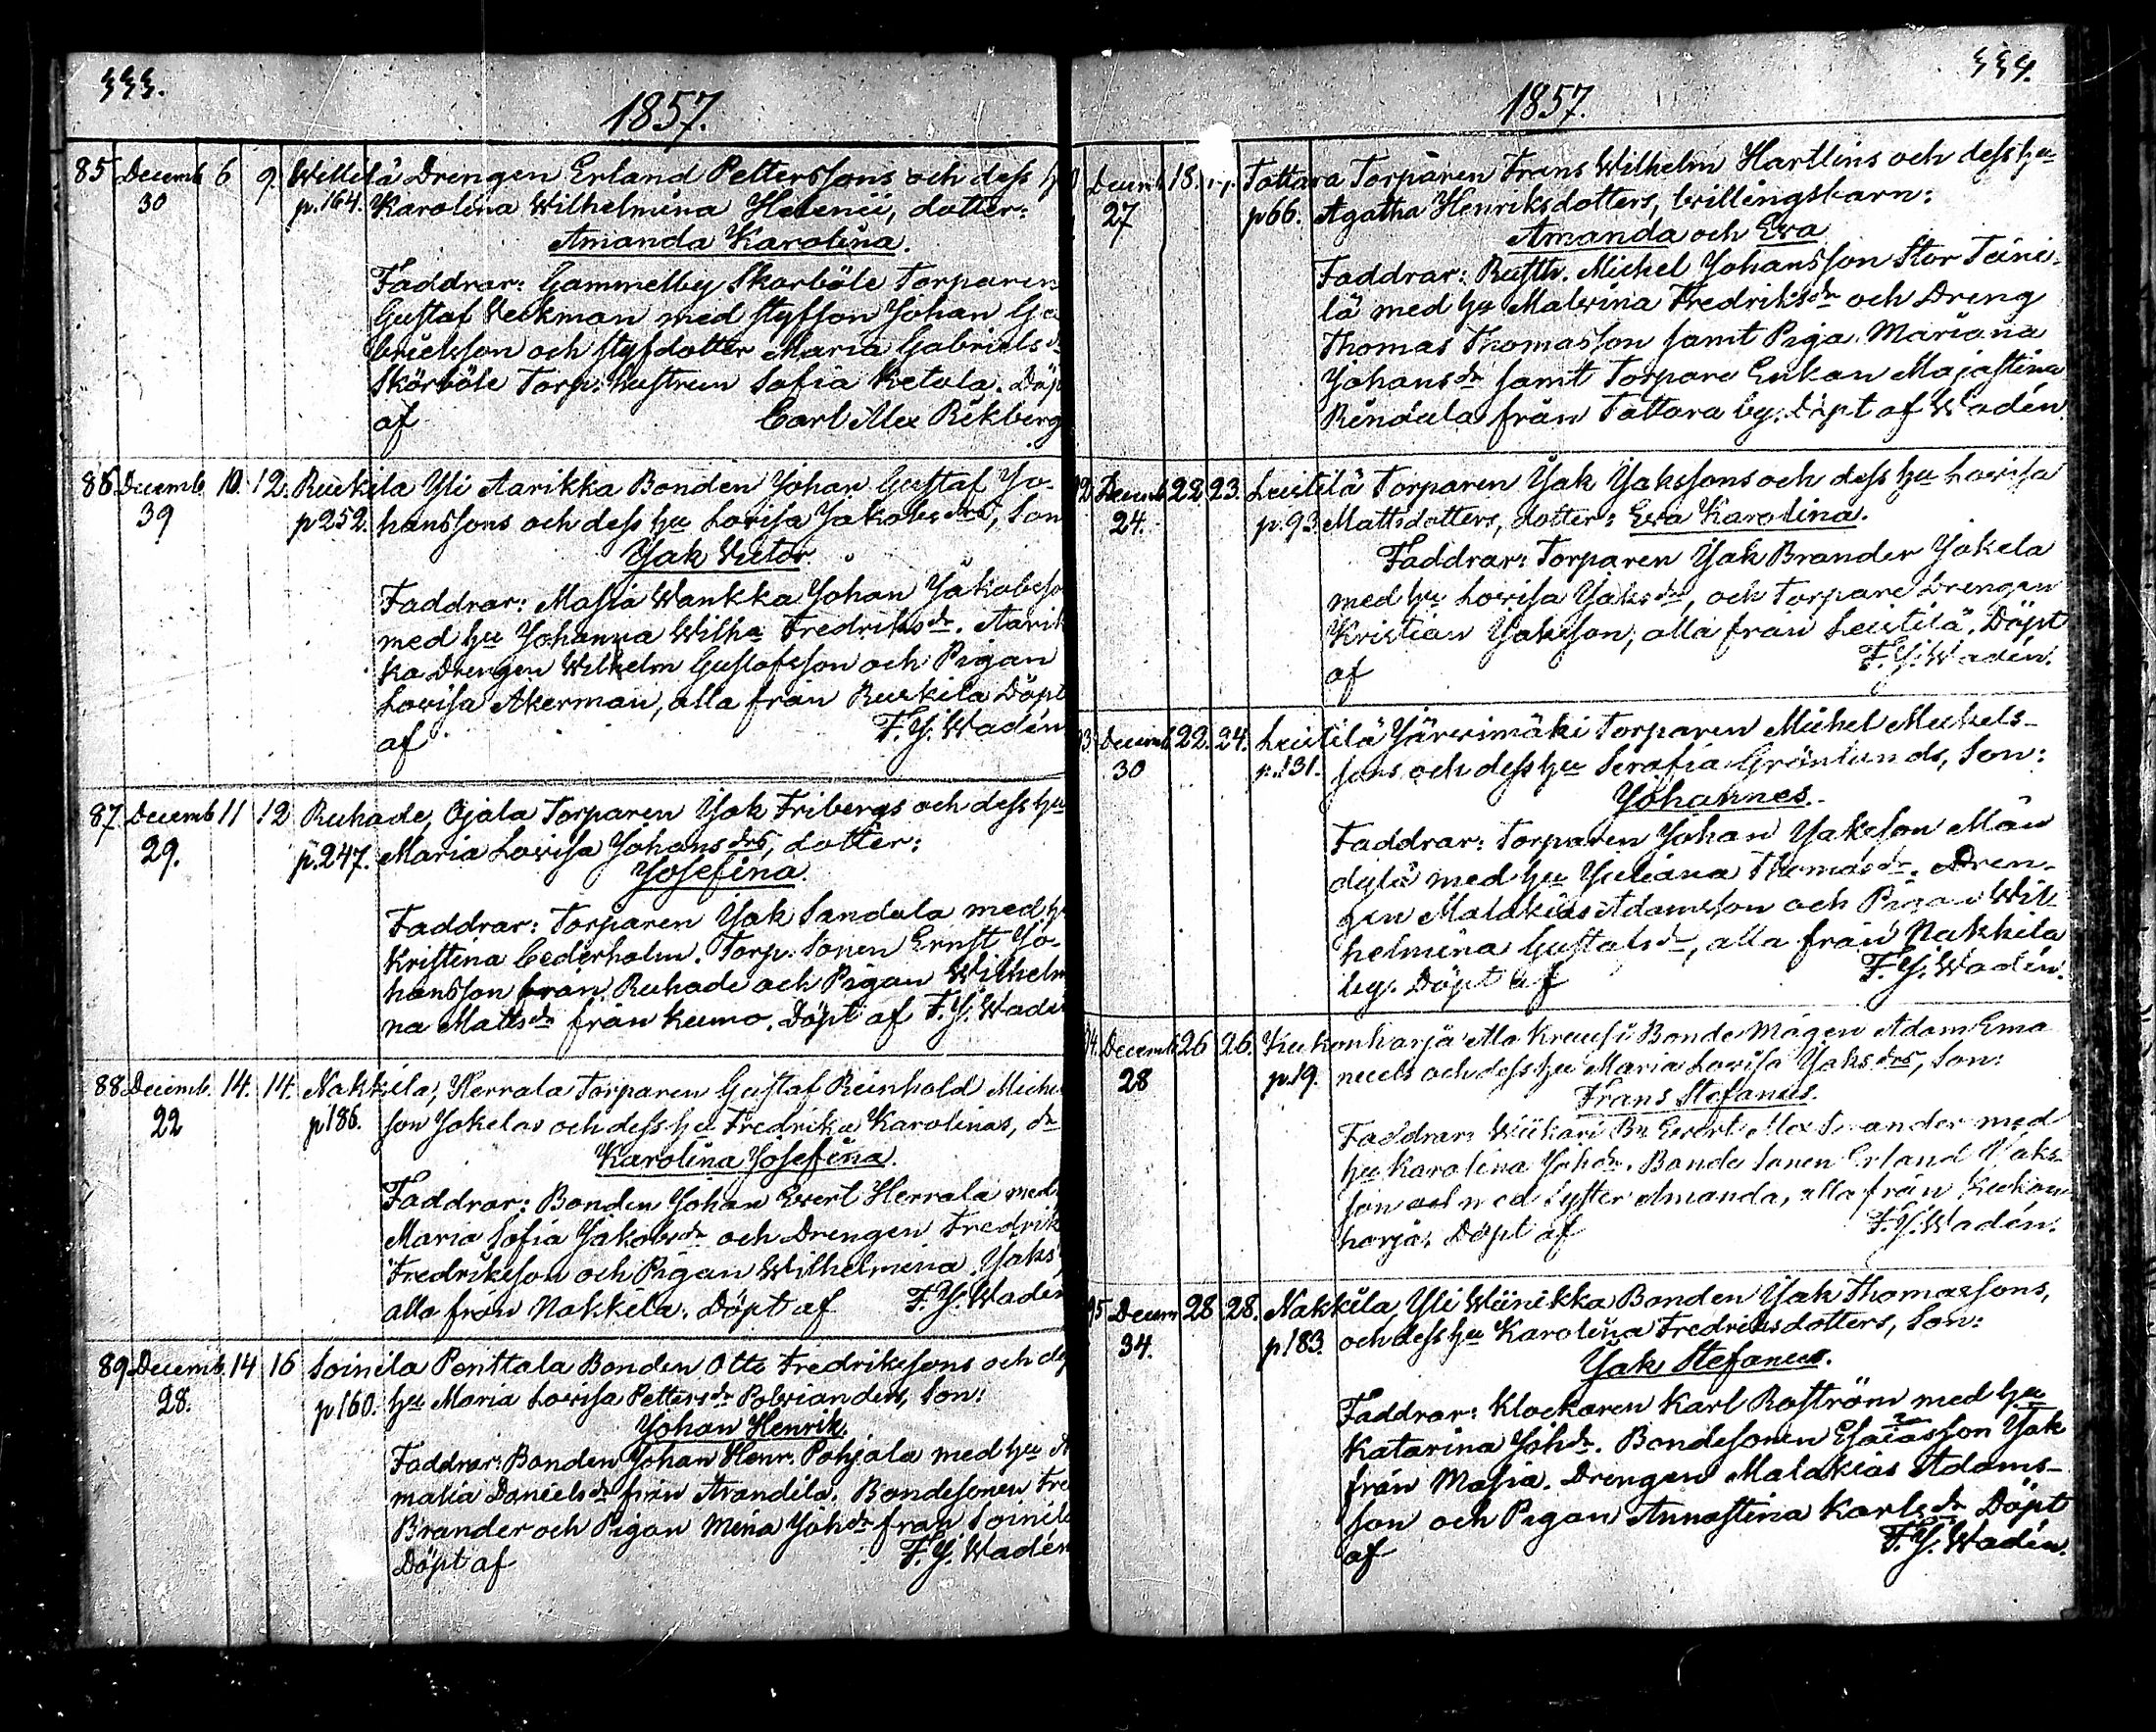 333.
1857.
85 Decemb 6 9. Willilä Drengen Erland Petterssons och dess
30 p.164. Karolina Wilhelmina Helenii, dotter:
Amanda Karolina.
Faddrar: Gammelby Skarböle Torparen
Gustaf Veckman med styfson Johan Ga
brielsson och styfdotter Maria Gabriels dr
Skörböle Torp. hustrun Sofia Ketola. Döp
af Carl Alex Rikberg
86 Decemb 10. 12. Ruskila Yli Aarikka Bonden Johan Gustaf Jo-
39 p252. hanssons och dess hu Lovisa Jakobs drs, Son
Jak Victor.
Faddrar: Masia Wankka Johan Jakobsso
med hu Johanna Wilha Fredriks dr. Aarik
ka Drengen Wilhelm Gustafsson och Pigan
Lovisa Akerman, alla från Ruskila Döpt
af F. J. Wadén
87. Decemb 11 12 Ruhade, Ojala Torparen Jak Fribergs och dess hu
29. p.247. Maria Lovisa Johans drs, dotter:
Josefina.
Faddrar: Torparen Jak Sandula med h
Kristina Cederholm. Torp. Sonen Ernst Jo-
hansson från Ruhade och Pigan Wilhelm
na Matts dr från Kumo. Döpt af F. J. Wadé
88 Decemb. 14. 14. Nakkila, Herrala Torparen Gustaf Reinhold Miche
22 p186. son Jokelas och dess hu Fredrika Karolinas, dr
Karolina Josefina.
Faddrar: Bonden Johan Evert Herrala med
Maria Sofia Jakobs dr och Drengen Fredrik
Fredriksson och Pigan Wilhelmina Jaks
alla från Nakkila. Döpt af F. J. Wadén
89 Decemb. 14 16 Soinila Penttala Bonden Otto Fredrikssons och de
28. p160. hu Maria Lovisa Petters dr Polvianders, Son:
Johan Henrik.
Faddrar: Bonden Johan Henr. Pohjala med hu A
malia Daniels dr från Arandila. Bondesonen Fre
Brander och Pigan Mina Joh dr från Soinila
Döpt af F. J. Wadén
334.
1857.
Decemb 18. Tattara Torparen Frans Wilhelm Hartlins och dess hu
27 p66. Agatha Henriksdotters, tvillingsbarn:
Amanda och Eva
Faddrar: Rusth. Michel Johansson Stor Teini-
lä med hu Malvina Fredriks dr och Dreng
Thomas Thomasson samt Piga Mariana
Johans dr samt Torpare Enkan Majastina
Rindala från Tattara by. Döpt af Wadén.
92 Decemb 22 23. Leistilä Torparen Jak Jakssons och dess hu Lovisa
24. p.93 Mattsdotters, dotter: Eva Karolina.
Faddrar: Torparen Jak Brander Jokela
med hu Lovisa Jaks dr, och Torpare Drengen
Kristian Jaksson, alla från Leistilä. Döpt
af F. J. Wadén.
93 Decemb 22. 24. Leistilä Järvimäki Torparen Michel Mickels-
30 p.131. sons och dess hu Serafia Grönlunds, Son:
Johannes.
Faddrar: Torparen Johan Jaksson Män
dylä med hu Juliana Thomas dr. Dren-
gen Malakias Adamsson och Pigan Wil
helmina Gustafs dr, alla från Nakkila
by. Döpt af F. J. Wadén.
94. Decemb 26 26. Kukonharja Ala Krausi Bonde Mågen Adam Ema
28 p.19. nuels och dess hu Maria Lovisa Jaks drs, Son:
Frans Stefanus.
Faddrar: Wiikari Bn Evert Alex med
hu Karolina Joh dr. Bonde Sonen Erland Jaks-
son med Syster Amanda, alla från Kukon
harja. Döpt af F. J. Wadén.
95 Decem 28 28. Nakkila, Yli Wiinikka Bonden Jak Thomassons,
34. p183. och dess hu Karolina Fredriksdotters, Son:
Jak Stefanus.
Faddrar: Klockaren Karl Roström med hu
Katarina Joh dr. Bondesonen Esaiasson Jak
från Masia. Drengen Malakias Adams-
son och Pigan Annastina Karls dr Döpt
af F. J. Wadén.